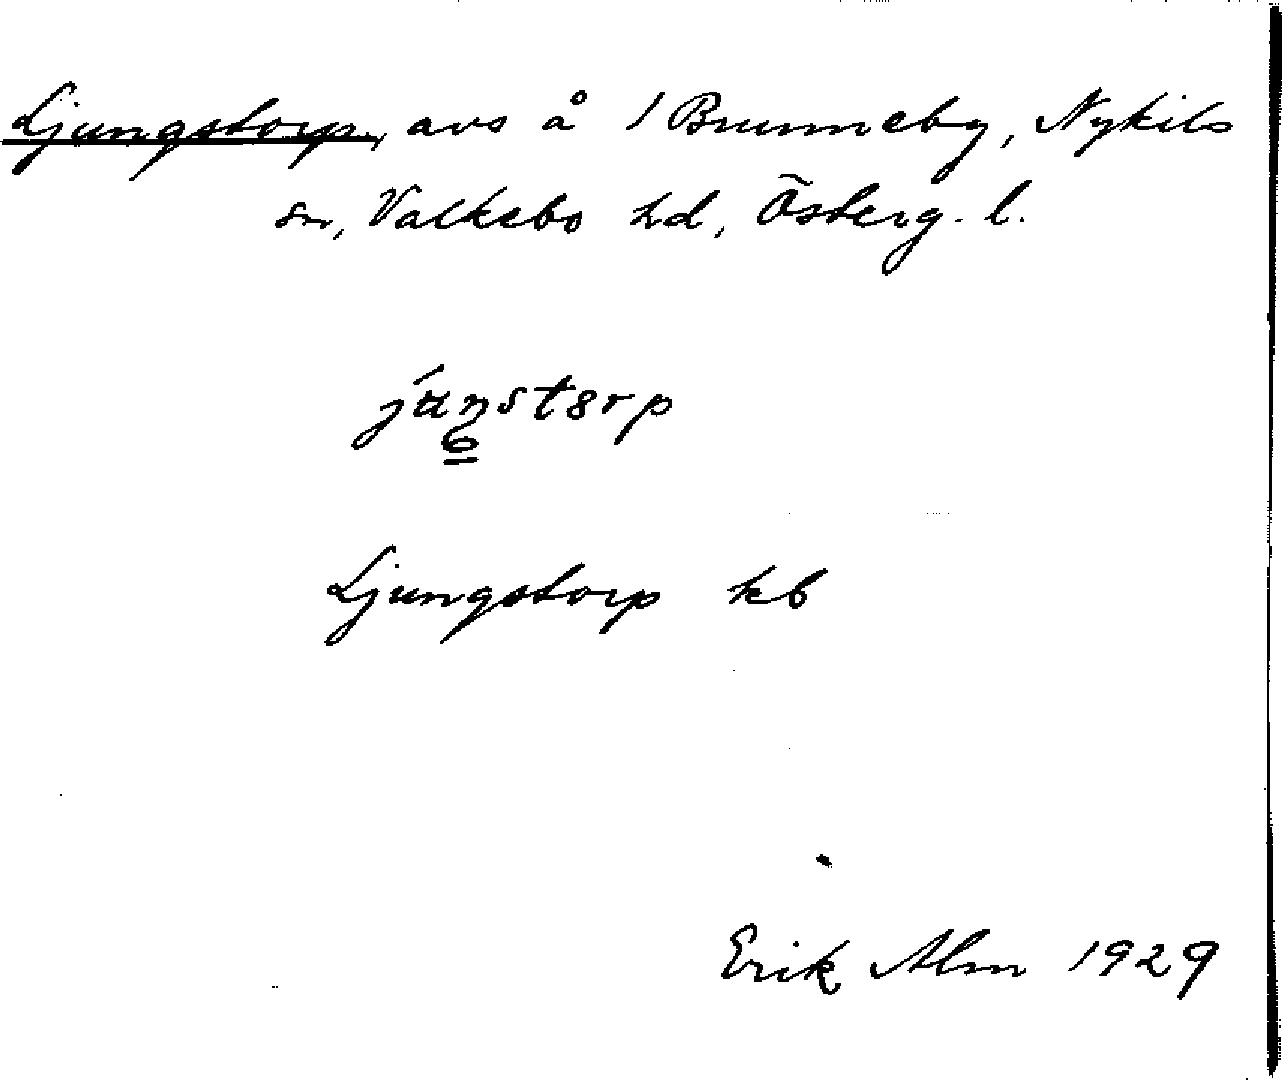 Ljungstorp, avs å 1 Brunneby, Nykils
sn, Valkebo hd, Österg. l.
Ljungstorp kb
Erik Alm 1929